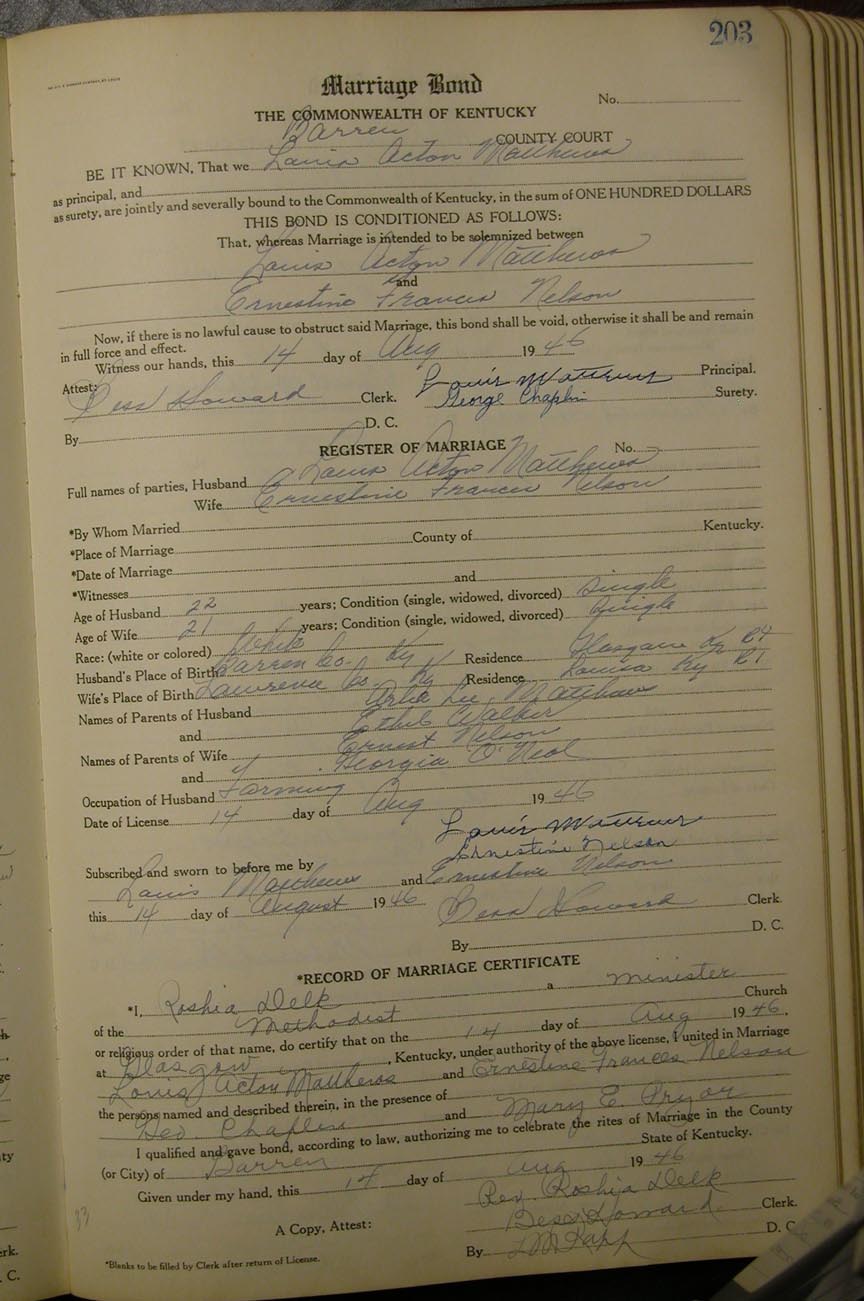 203
Marriage Bond
No.
THE COMMONWEALTH OF KENTUCKY
Barren COUNTY COURT
BE IT KNOWN, That we Louis Acton Matthews
as principal, and
as surety, are jointly and severally bound to the Commonwealth of Kentucky, in the sum of ONE HUNDRED DOLLARS
THIS BOND IS CONDITIONED AS FOLLOWS:
That, whereas Marriage is intended to be solemnized between
Louis Acton Matthews
and
Ernestine Francis Nelson
Now, if there is no lawful cause to obstruct said Marriage, this bond shall be void, otherwise it shall be and remain
in full force and effect.
Witness our hands, this 14 day of Aug 1946
Attest: Louis Matthews Principal.
Bess Howard Clerk. George Chaplin Surety.
By D. C.
REGISTER OF MARRIAGE No.
Full names of parties, Husband Louis Acton Matthews
Wife Ernestine Francis Nelson
*By Whom Married
*Place of Marriage County of Kentucky.
*Date of Marriage
*Witnesses and
Age of Husband 22 years; Condition (single, widowed, divorced) Single
Age of Wife 21 years; Condition (single, widowed, divorced) Single
Race: (white or colored) White
Husband's Place of Birth Barren Co. Ky Residence Glasgow Ky R4
Wife's Place of Birth Lawrence Co. Ky Residence Louisa Ky R1
Names of Parents of Husband Arlie Lee Matthews
and Ethel Walker
Names of Parents of Wife Ernest Nelson
and Georgia O'Neal
Occupation of Husband Farming
Date of License 14 day of Aug 1946
Louis Matthews
Subscribed and sworn to before me by Ernestine Nelson
Louis Matthews and Ernestine Nelson
this 14 day of August 1946 Bess Howard Clerk.
By D. C.
*RECORD OF MARRIAGE CERTIFICATE
*I, Roshia Delk a minister
of the Methodist Church
or religious order of that name, do certify that on the 14 day of Aug 1946,
at Glasgow, Kentucky, under authority of the above license, I united in Marriage
Louis Acton Matthews and Ernestine Frances Nelson
the persons named and described therein, in the presence of
Geo. Chaplin and Mary E. Pryor
I qualified and gave bond, according to law, authorizing me to celebrate the rites of Marriage in the County
(or City) of Barren State of Kentucky.
Given under my hand, this 14 day of Aug 1946
Rev. Roshia Delk
A Copy, Attest: Bess Howard Clerk.
By D. C.
*Blanks to be filled by Clerk after return of License.